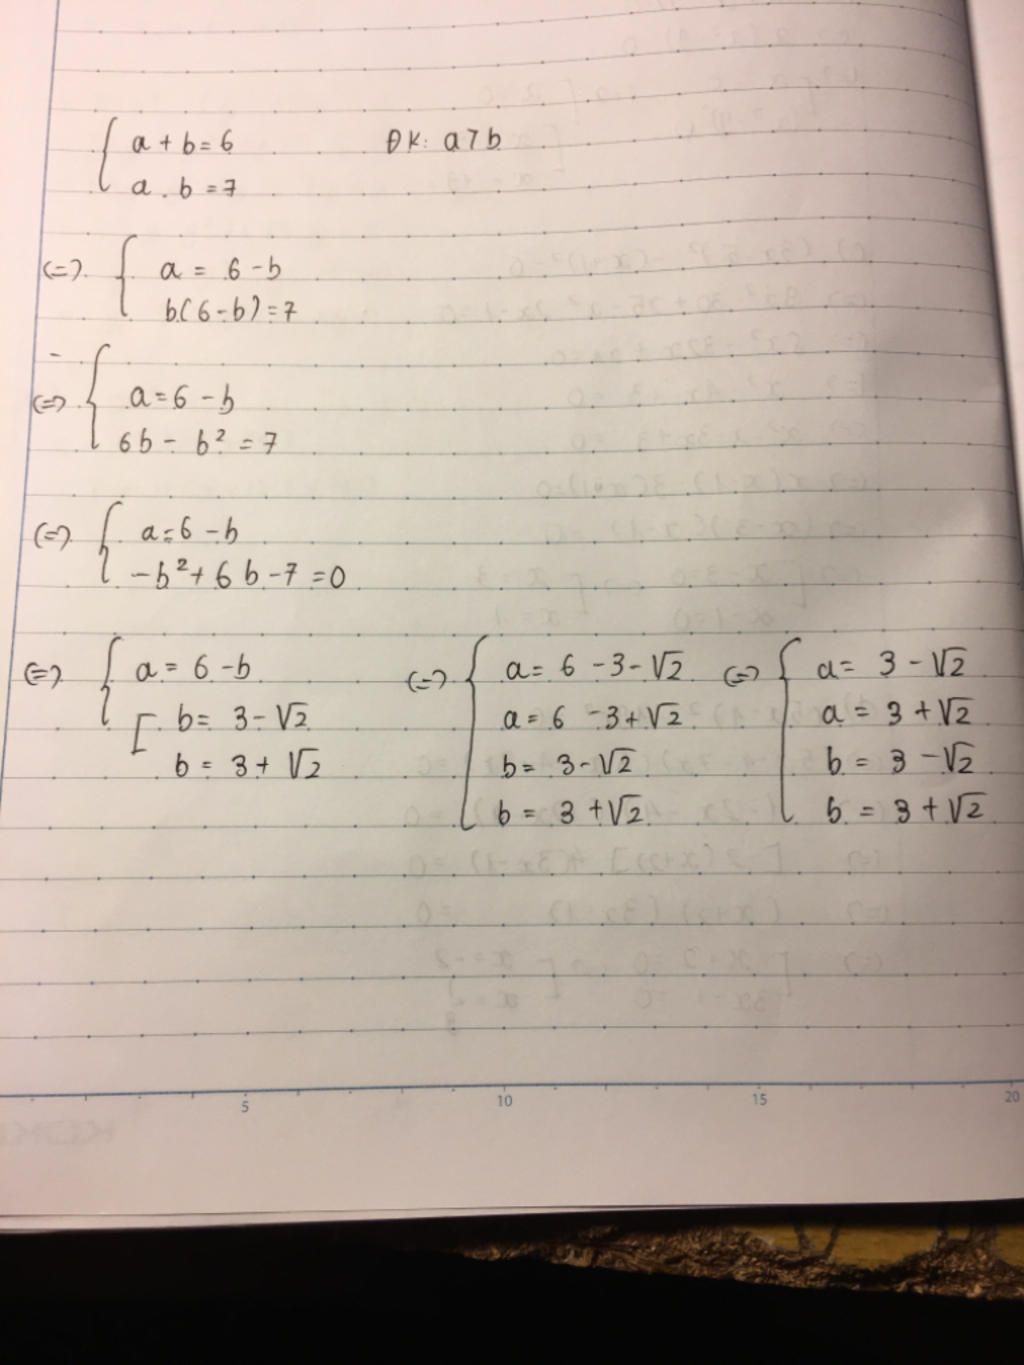 a + b = 6 ĐK: a > b
a . b = 7
(=) a = 6 - b
b(6 - b) = 7
(=) a = 6 - b
6b - b² = 7
(=) a = 6 - b
-b² + 6b - 7 = 0
(=) a = 6 - b
b = 3 - √2
b = 3 + √2
(=) a = 6 - 3 - √2
a = 6 - 3 + √2
b = 3 - √2
b = 3 + √2
(=) a = 3 - √2
a = 3 + √2
b = 3 - √2
b = 3 + √2
5 10 15 20